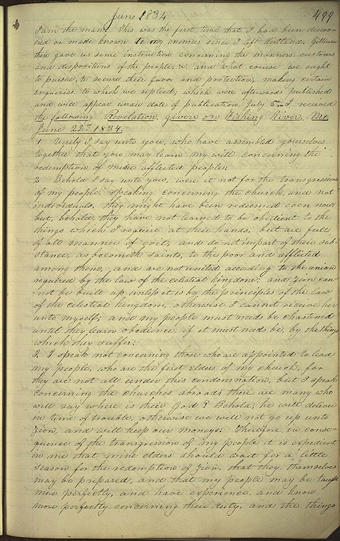 June 1834 499
I am the man. This was the first time that I had been discov-
ered or made known to my enemies since I left Kirtland. Gillium
now gave us some instruction concerning the manners, customs
and dispositions of the people, &c and what course we ought
to pursue, to secure their favor and protection, making certain
enquiries to which we replied, which were afterwards published
and will appear under date of publication, July I received
the following Revelation given on Fishing River, Mo.
June 22nd 1834.
1 Verily I say unto you, who have assembled yourselves
together that you may learn my will concerning the
redemption of mine afflicted people.
2 Behold I say unto you, were it not for the transgressions
of my people, speaking concerning the church and not
individuals, they might have been redeemed even now:
but, behold they have not learned to be obedient to the
things which I require at their hands, but are full
of all manner of evil, and do not impart of their sub-
stance, as becometh saints, to the poor and afflicted
among them, and are not united according to the union
required by the law of the celestial kingdom: and Zion can-
not be built up unless it is by the principles of the law
of the celestial kingdom, otherwise I cannot receive her
unto myself; and my people must needs be chastened
until they learn obedience, if it must needs be, by the things
which they suffer.
3 I speak not concerning those who are appointed to lead
my people, who are the first elders of my church, for
they are not all under this condemnation, but I speak
concerning the churches abroad: there are many who
will say where is their God? Behold, he will deliver
in time of trouble; otherwise we will not go up unto
Zion, and will keep our moneys. Therefore in conse-
quence of the transgression of my people it is expedient
in me that mine elders should wait for a little
season for the redemption of Zion, that they themselves
may be prepared, and that my people may be taught
more perfectly, and have experience, and know
more perfectly concerning their duty, and the things